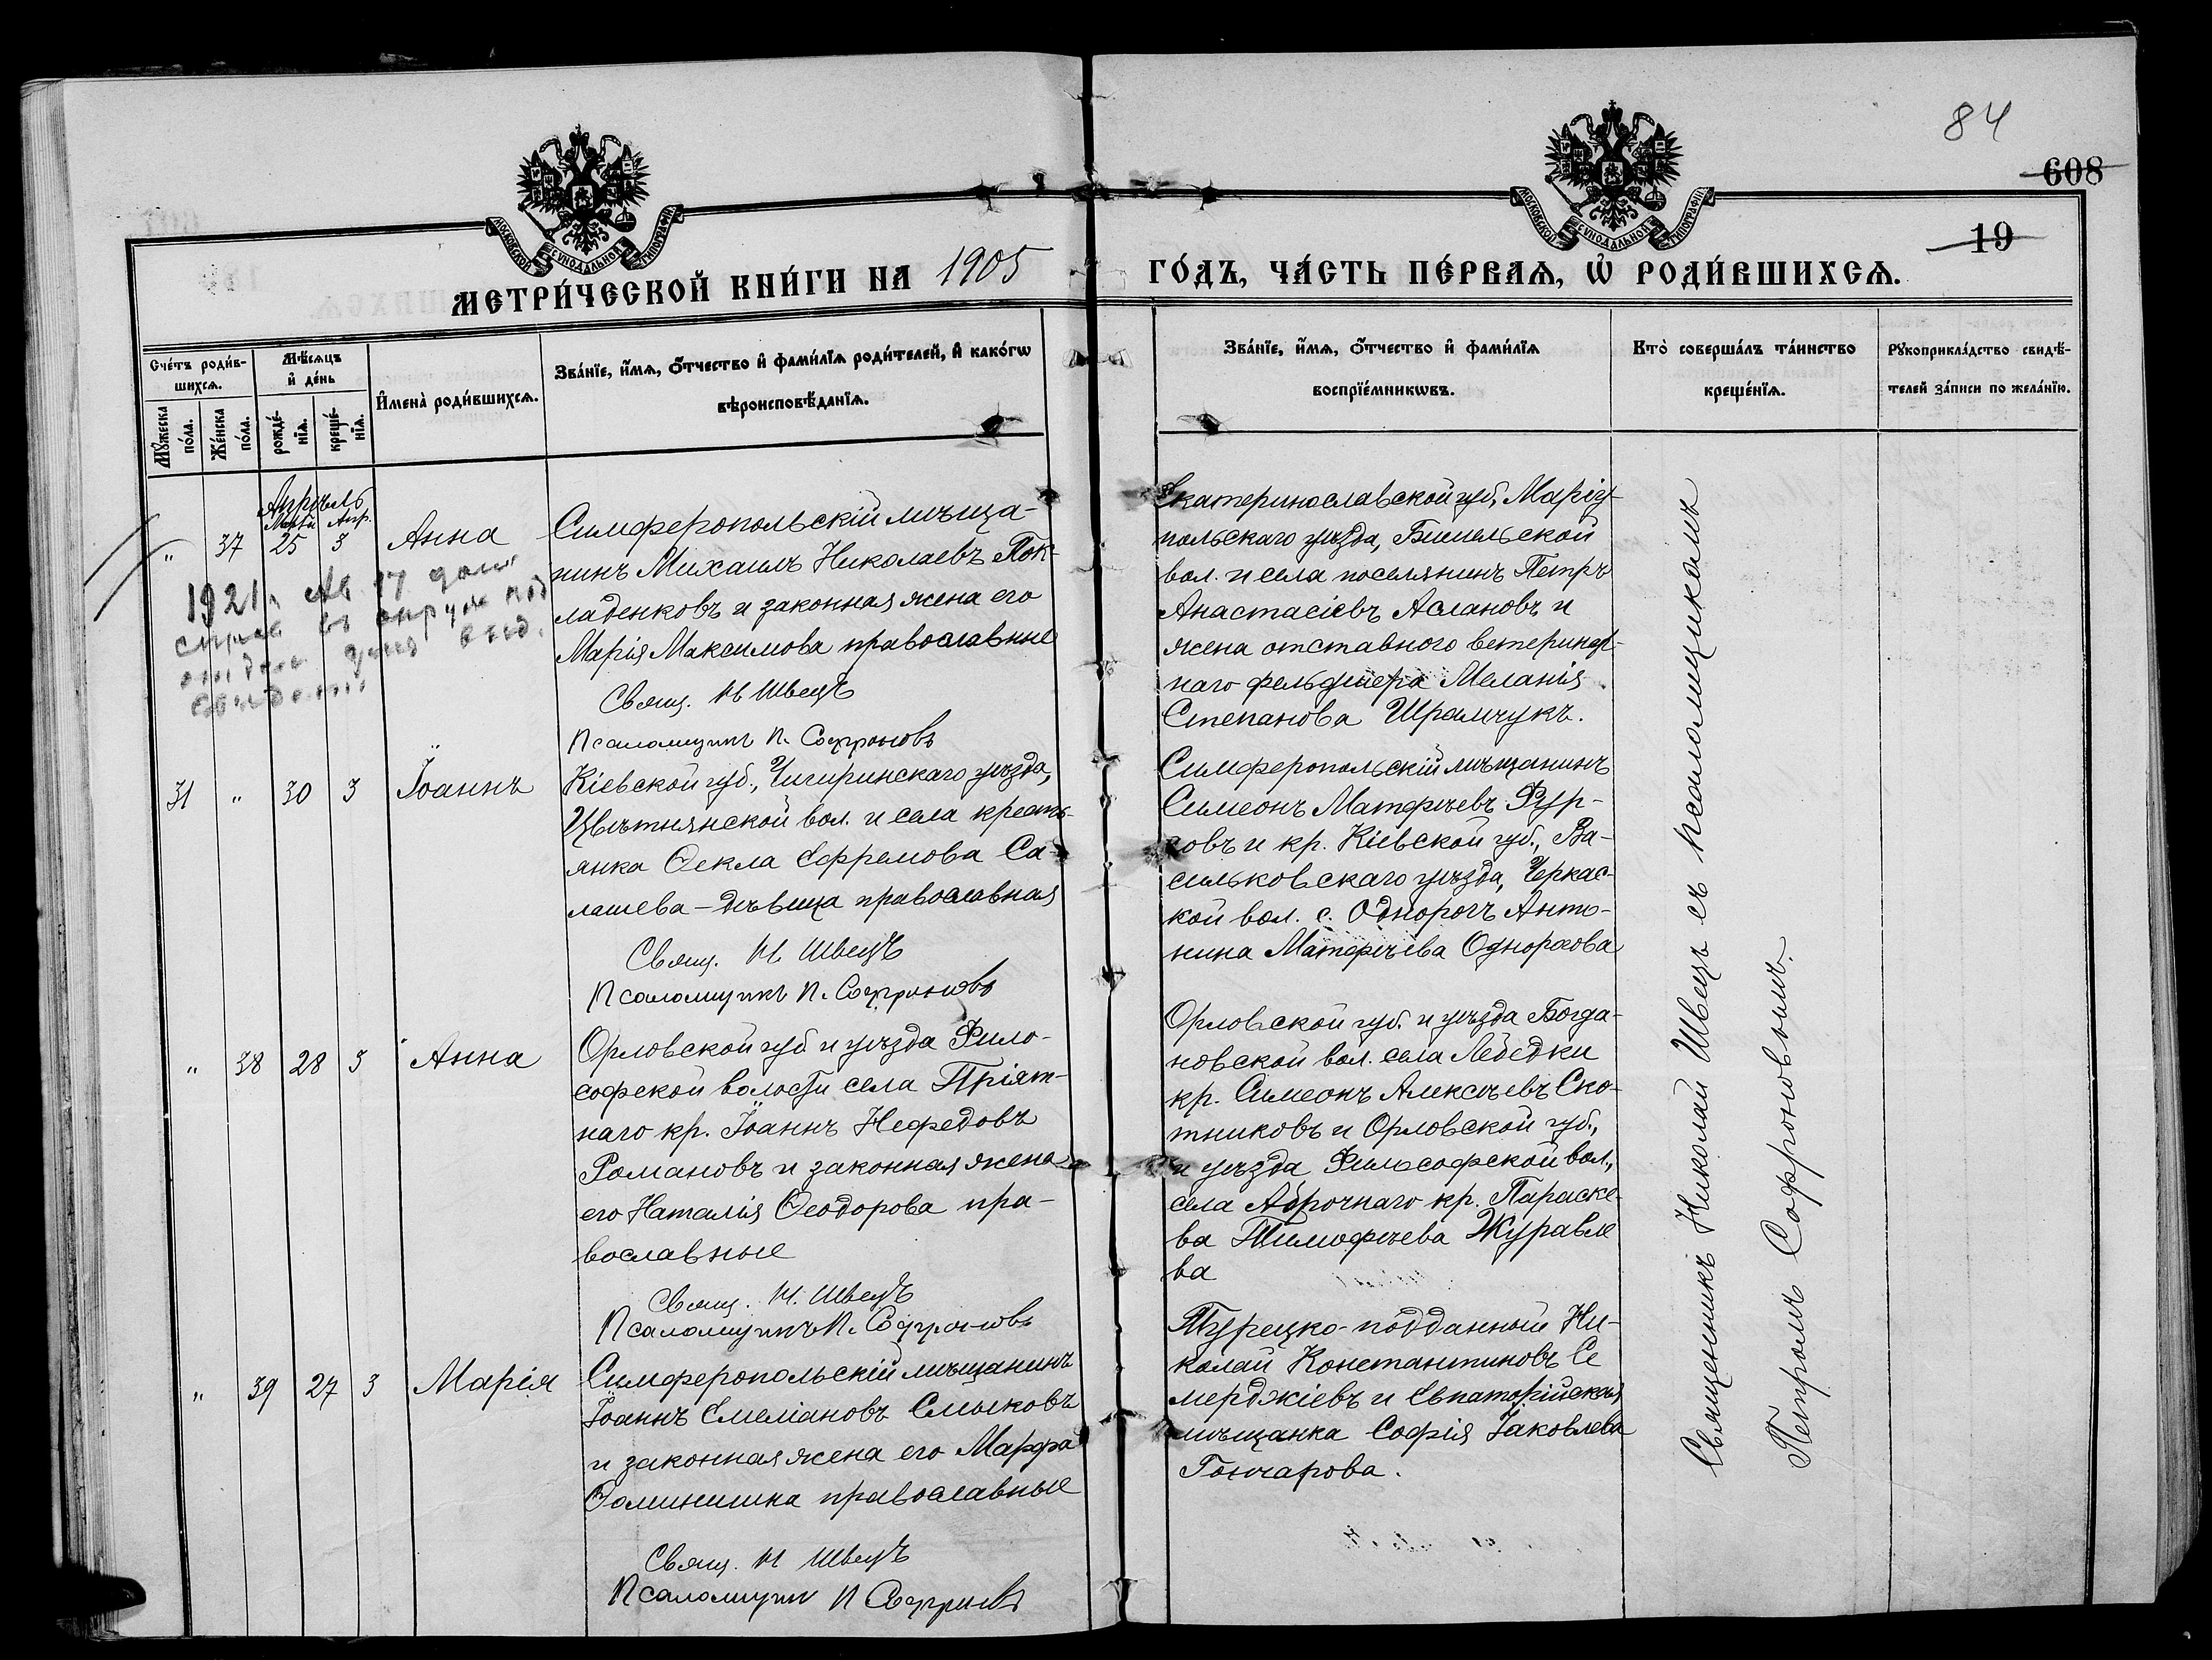 84
608
19
МОСКОВСКОЙ СѴНОДАЛЬНОЙ ТИПОГРАФІИ
МОСКОВСКОЙ СѴНОДАЛЬНОЙ ТИПОГРАФІИ
МЕТРИ́ЧЕСКОЙ КНИ́ГИ НА 1905
ГО́ДЪ, ЧА́СТЬ ПЕ́РВАѦ, Ѡ҆ РОДИ́ВШИХСѦ.
Сче́тъ роди́в-
шихсѧ.
Мꙋ́жеска
по́ла.
Же́нска
по́ла.
Мѣ́сѧцъ
и҆ де́нь
рожде́-
нїѧ.
креще́-
нїѧ.
И҆мена̀ роди́вшихсѧ.
Зва́нїе, и҆́мѧ, ѻ҆́тчество и҆ фами́лїѧ роди́телей, и҆ како́гѡ
вѣроисповѣ́данїѧ.
Зва́нїе, и҆́мѧ, ѻ҆́тчество и҆ фами́лїѧ
воспрїе́мникѡвъ.
Кто̀ соверша́лъ та́инство
креще́нїѧ.
Рꙋкоприкла́дство свидѣ́-
телей за́писи по жела́нїю.
Апрѣль
Марта Апр.
" 37 25 3 Анна
Симферопольскій мѣща-
нинъ Михаилъ Николаевъ Пок-
ладенковъ и законная жена его
Марія Максимова православные
Свящ. Н Швецъ
Псаломщикъ П. Софроновъ
1921г.
Екатеринославской губ., Маріу-
польскаго уѣзда, Бишельской
вол. и села поселянинъ Петръ
Анастасіевъ Аслановъ и
жена отставного ветеринар-
наго фельдшера Меланія
Степанова Шрамчукъ.
31 " 30 3 Іоаннъ
Кіевской губ., Чигиринскаго уѣзда,
Цвѣтнянской вол. и села кресть-
янка Ѳекла Ефремова Са-
лашева – дѣвица православная
Свящ. Н Швецъ
Псаломщикъ П. Софроновъ
Симферопольскій мѣщанинъ
Симеонъ Матфѣевъ Фур-
совъ и кр. Кіевской губ., Ва-
сильковскаго уѣзда, Черкас-
кой вол. с. Однорогъ Анто-
нина Матфѣева Однорогова
" 38 28 3 Анна
Орловской губ. и уѣзда Фило-
софской волости села Пріят-
наго кр. Іоаннъ Нефедовъ
Романовъ и законная жена
его Наталія Ѳеодорова пра-
вославные
Свящ. Н. Швецъ
Псаломщикъ П. Софроновъ
Орловской губ. и уѣзда Богда-
новской вол. села Лебедки
кр. Симеонъ Алексѣевъ Ско-
тниковъ и Орловской губ.,
и уѣзда Философской вол.,
села Оброчнаго кр. Параске-
ва Тимофѣева Журавле
ва
" 39 27 3 Марія
Симферопольскій мѣщанинъ
Іоаннъ Емеліановъ Смыковъ
и законная жена его Марфа
Ѳоминишна православные
Свящ. Н Швецъ
Псаломщикъ П Софроновъ
Турецко-подданный Ни-
колай Константиновъ Се
мерджіевъ и Евпаторійская
мѣщанка Софія Іаковлева
Гончарова.
Священникъ Николай Швецъ съ псаломщикомъ
Петромъ Софроновымъ.